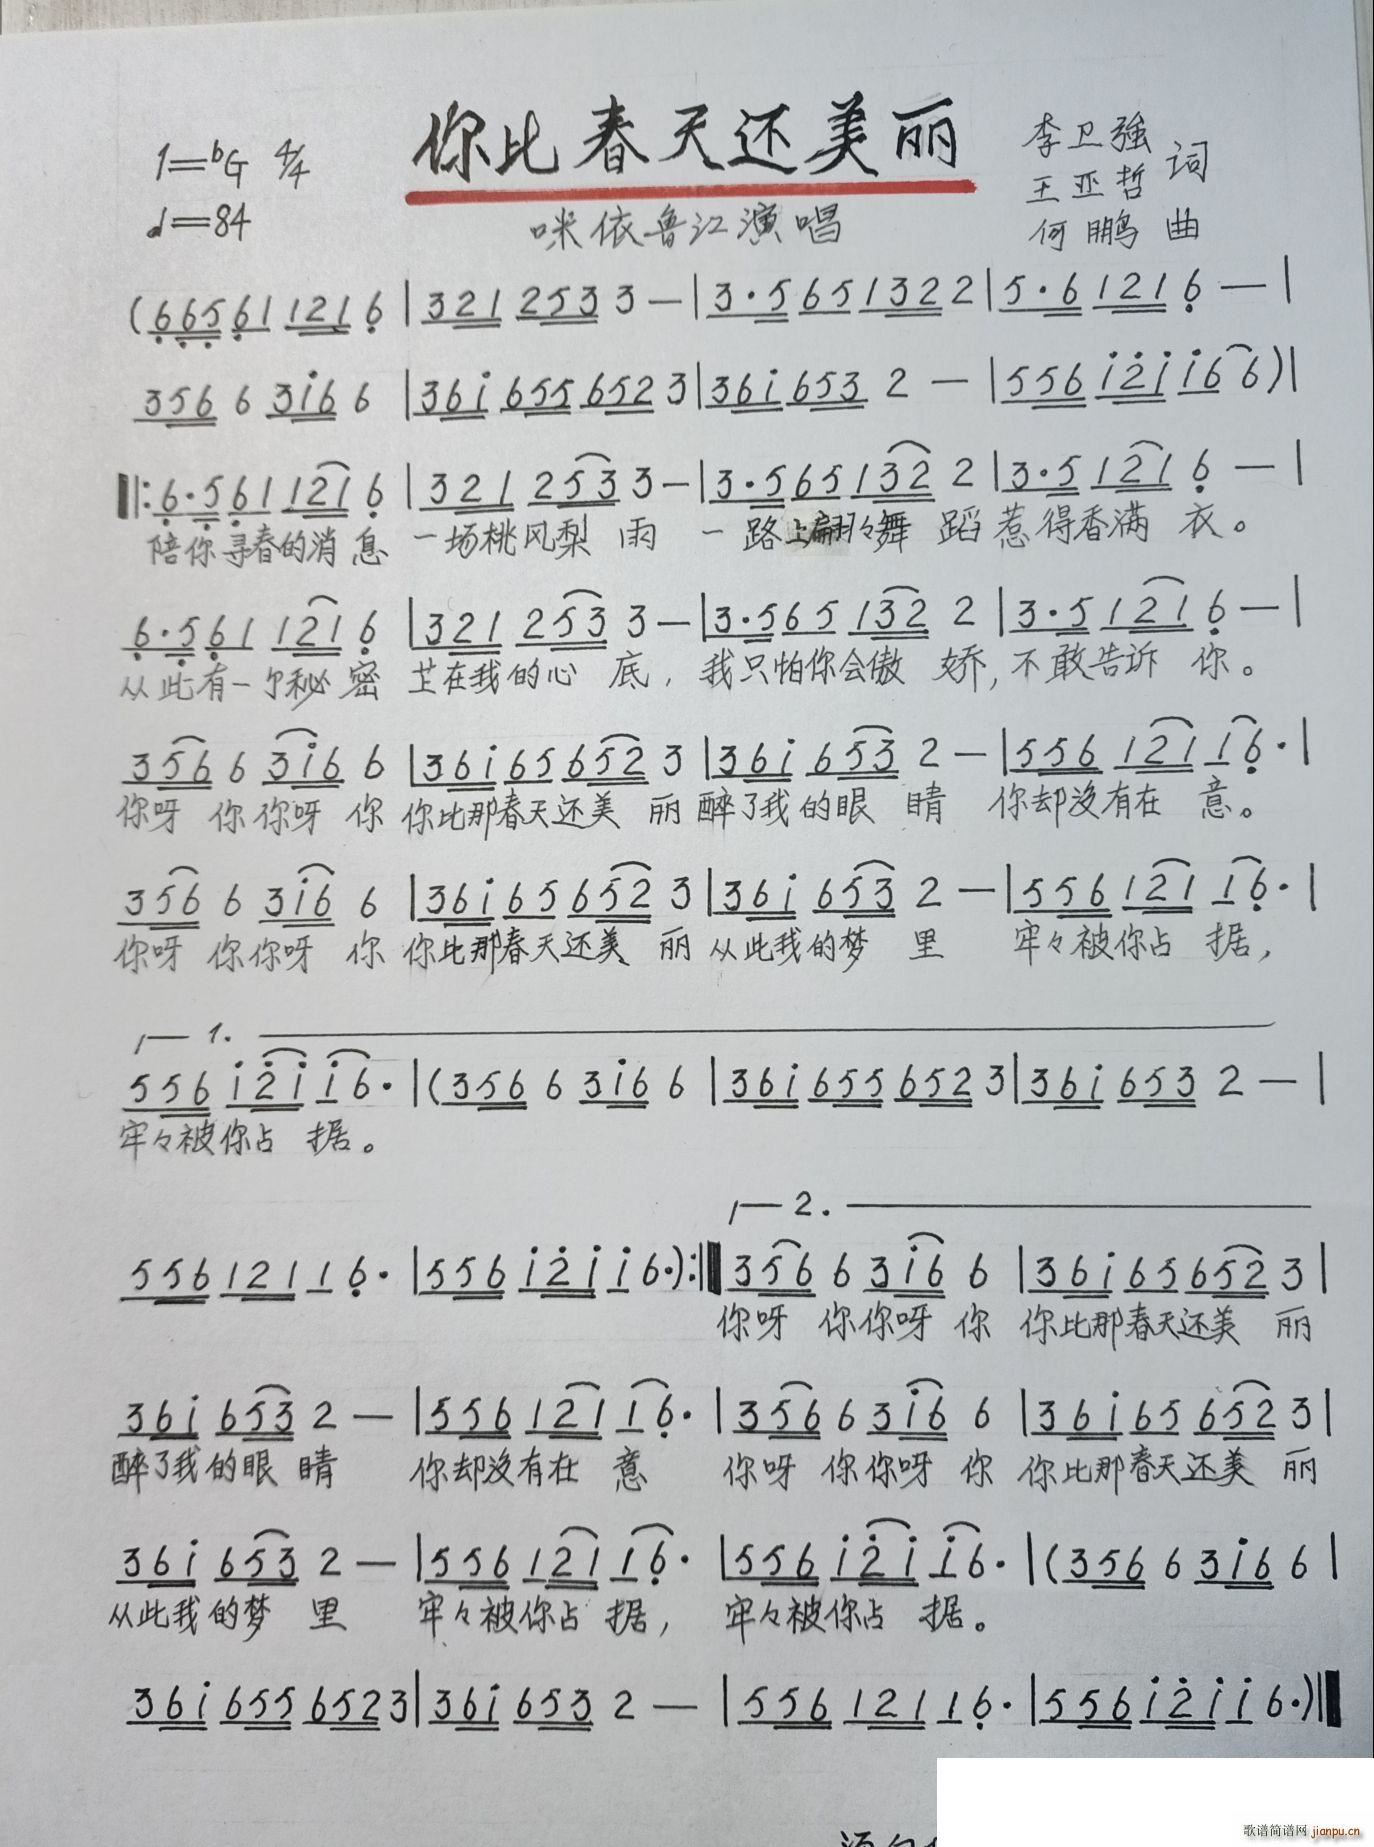 你比春天还美丽
1=ᵇG 4/4
李卫强
王亚哲 词
♩=84
咪依鲁江演唱
何鹏 曲
(6 6 5 6 1 1 2 1 6 | 3 2 1 2 5 3 3 — | 3 · 5 6 5 1 3 2 2 2 | 5 · 6 1 2 1 6 — |
3 5 6 6 3 i 6 6 | 3 6 i 6 5 5 6 5 2 3 | 3 6 i 6 5 3 2 — | 5 5 6 i 2 i i 6 6 ) |
‖: 6 · 5 6 1 1 2 1 6 | 3 2 1 2 5 3 3 — | 3 · 5 6 5 1 3 2 2 | 3 · 5 1 2 1 6 — |
陪你寻春的消息 一场桃风梨雨 一路上翩翩々舞蹈惹得香满衣。
6 · 5 6 1 1 2 1 6 | 3 2 1 2 5 3 3 — | 3 · 5 6 5 1 3 2 2 | 3 · 5 1 2 1 6 — |
从此有一个秘密 芷在我的心底, 我只怕你会傲娇, 不敢告诉你。
3 5 6 6 3 i 6 6 | 3 6 i 6 5 6 5 2 3 | 3 6 i 6 5 3 2 — | 5 5 6 1 2 1 1 6 · |
你呀 你你呀 你 你比那春天还美丽 醉了我的眼睛 你却没有在意。
3 5 6 6 3 i 6 6 | 3 6 i 6 5 6 5 2 3 | 3 6 i 6 5 3 2 — | 5 5 6 1 2 1 1 6 · |
你呀 你你呀 你 你比那春天还美丽 从此我的梦里 牢々被你占据,
1.
5 5 6 i 2 i i 6 · | (3 5 6 6 3 i 6 6 | 3 6 i 6 5 5 6 5 2 3 | 3 6 i 6 5 3 2 — |
牢々被你占据。
2.
5 5 6 1 2 1 1 6 · | 5 5 6 i 2 i i 6 ·) :‖ 3 5 6 6 3 i 6 6 | 3 6 i 6 5 6 5 2 3 |
你呀 你你呀 你 你比那春天还美丽
3 6 i 6 5 3 2 — | 5 5 6 1 2 1 1 6 · | 3 5 6 6 3 i 6 6 | 3 6 i 6 5 6 5 2 3 |
醉了我的眼睛 你却没有在意 你呀 你你呀 你 你比那春天还美丽
3 6 i 6 5 3 2 — | 5 5 6 1 2 1 1 6 · | 5 5 6 i 2 i i 6 · | (3 5 6 6 3 i 6 6 |
从此我的梦里 牢々被你占据, 牢々被你占据。
3 6 i 6 5 5 6 5 2 3 | 3 6 i 6 5 3 2 — | 5 5 6 1 2 1 1 6 · | 5 5 6 i 2 i i 6 ·) ‖
歌谱简谱网 jianpu.cn